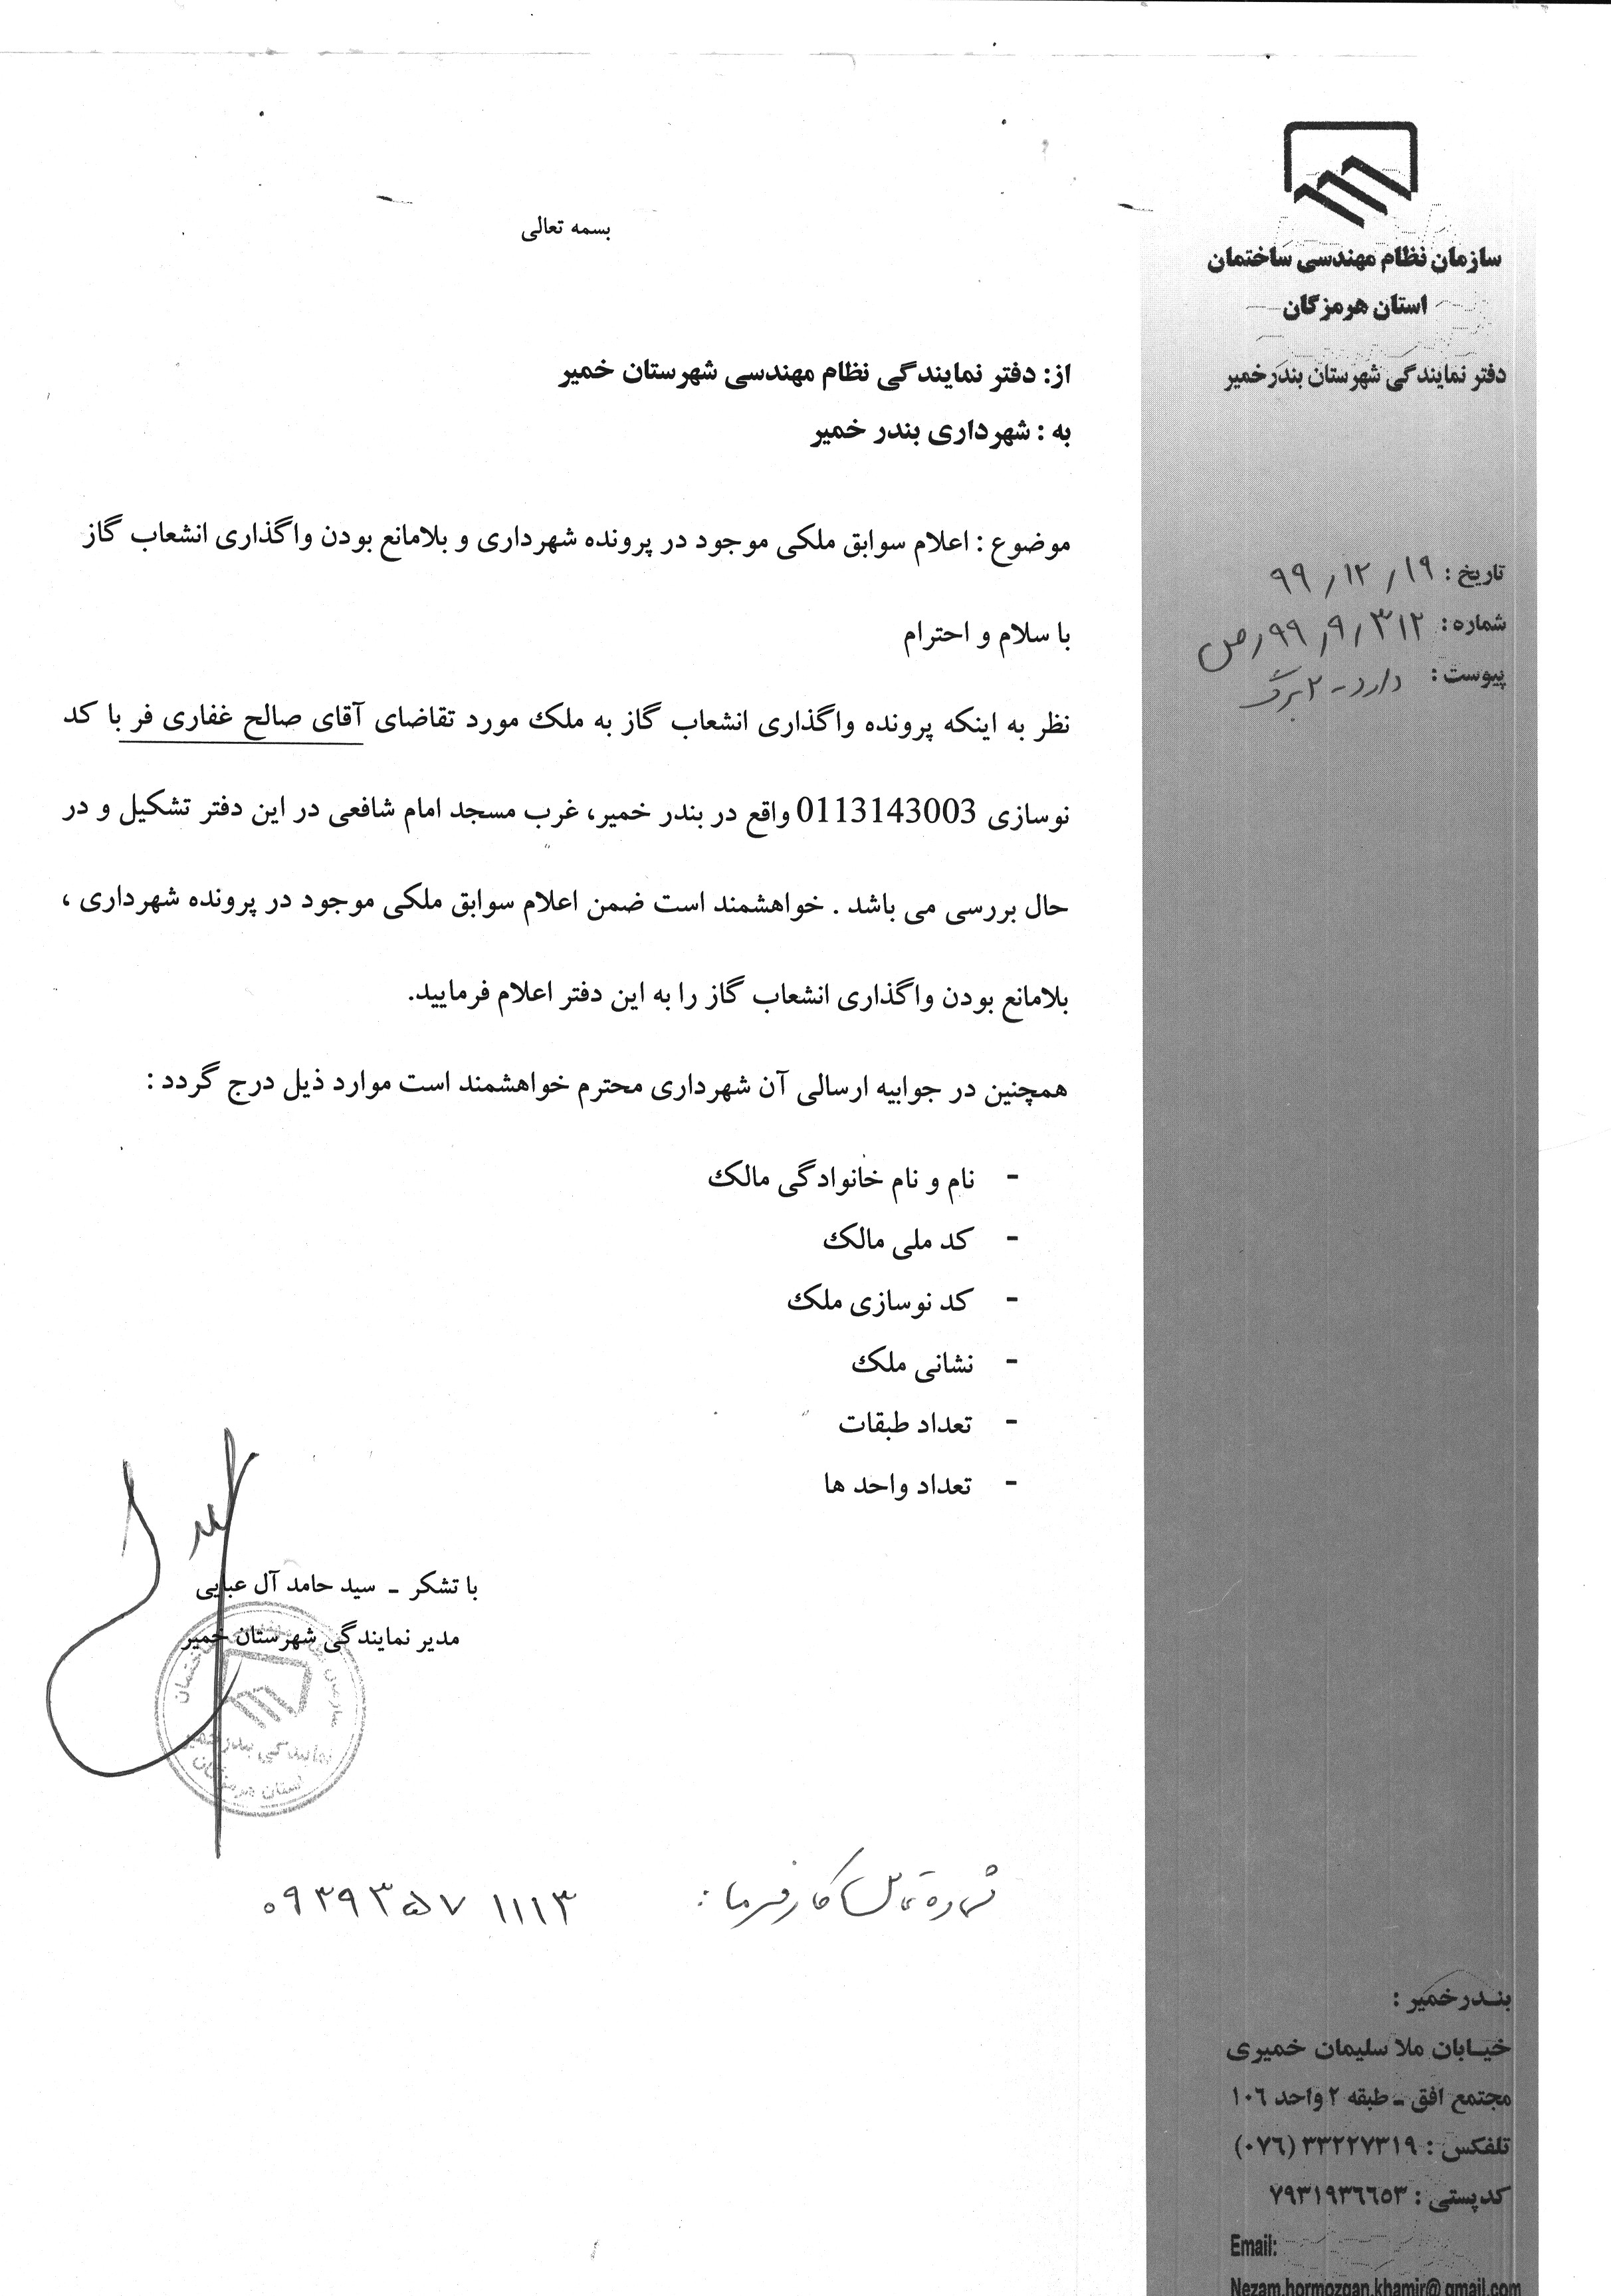 سازمان نظام مهندسی ساختمان
استان هرمزگان
دفتر نمایندگی شهرستان بندرخمیر
تاریخ : ۹۹٫۱۲٫۱۹
شماره : ۳۱۲٫۹٫۹۹٫ص
پیوست : دارد - ۲ برگ
بسمه تعالی
از: دفتر نمایندگی نظام مهندسی شهرستان خمیر
به : شهرداری بندر خمیر
موضوع : اعلام سوابق ملکی موجود در پرونده شهرداری و بلامانع بودن واگذاری انشعاب گاز
با سلام و احترام
نظر به اینکه پرونده واگذاری انشعاب گاز به ملک مورد تقاضای آقای صالح غفاری فر با کد
نوسازی 0113143003 واقع در بندر خمیر، غرب مسجد امام شافعی در این دفتر تشکیل و در
حال بررسی می باشد . خواهشمند است ضمن اعلام سوابق ملکی موجود در پرونده شهرداری ،
بلامانع بودن واگذاری انشعاب گاز را به این دفتر اعلام فرمایید.
همچنین در جوابیه ارسالی آن شهرداری محترم خواهشمند است موارد ذیل درج گردد :
- نام و نام خانوادگی مالک
- کد ملی مالک
- کد نوسازی ملک
- نشانی ملک
- تعداد طبقات
- تعداد واحد ها
با تشکر - سید حامد آل عبایی
مدیر نمایندگی شهرستان خمیر
نمایندگی بندرخمیر
استان هرمزگان
شماره تماس کارفرما : ۰۹۳۹۳۵۷۱۱۱۳
بندرخمیر :
خیابان ملا سلیمان خمیری
مجتمع افق - طبقه ۲ واحد ۱۰۶
تلفکس : ۳۳۲۲۷۳۱۹ (۰۷۶)
کدپستی : ۷۹۳۱۹۳۶۶۵۳
Email:
Nezam.hormozgan.khamir@gmail.com